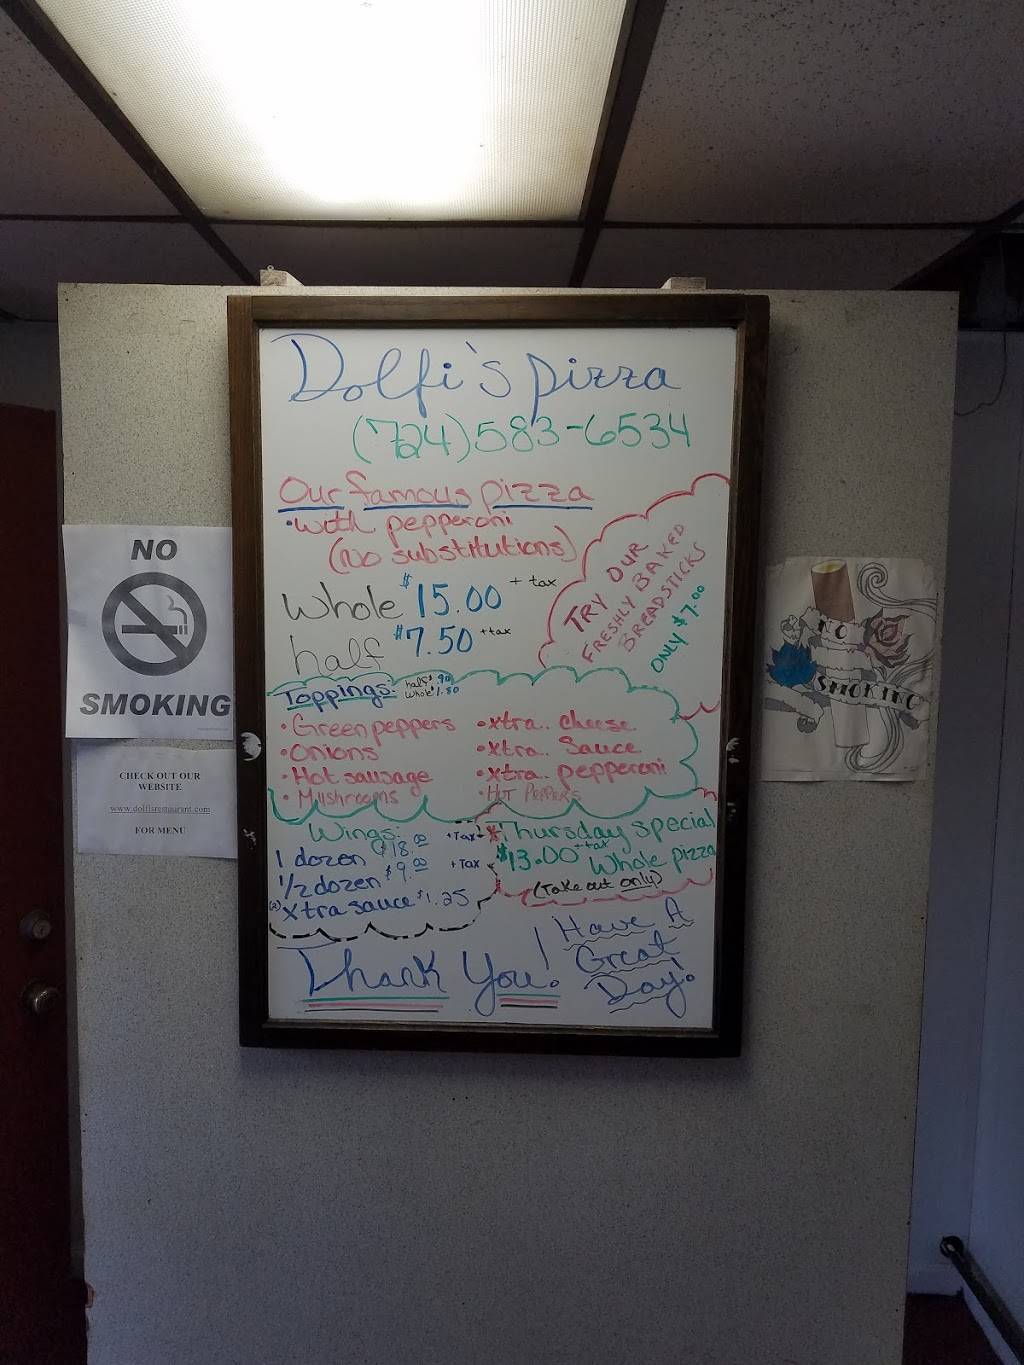 Dolfi's pizza
(724)583-6534
Our famous pizza
•with pepperoni
(No substitutions)
Whole $15.00 + tax
half $7.50 +tax
TRY OUR
FRESHLY BAKED
BREADSTICKS
ONLY $7.00
Toppings: half $.90
Whole $1.80
•Green peppers
•Onions
•Hot sausage
•Mushrooms
•xtra.. cheese
•xtra.. Sauce
•xtra.. pepperoni
•HOT PEPPERS
Wings:
1 dozen $18.00 +Tax
1/2 dozen $9.00 +Tax
xtra sauce $1.25
Thursday special
$13.00 +tax Whole pizza
(Take out only)
Thank You!
Have A
Great
Day!
NO
SMOKING
CHECK OUT OUR
WEBSITE
www.dolfisrestaurant.com
FOR MENU
NO
SMOKING